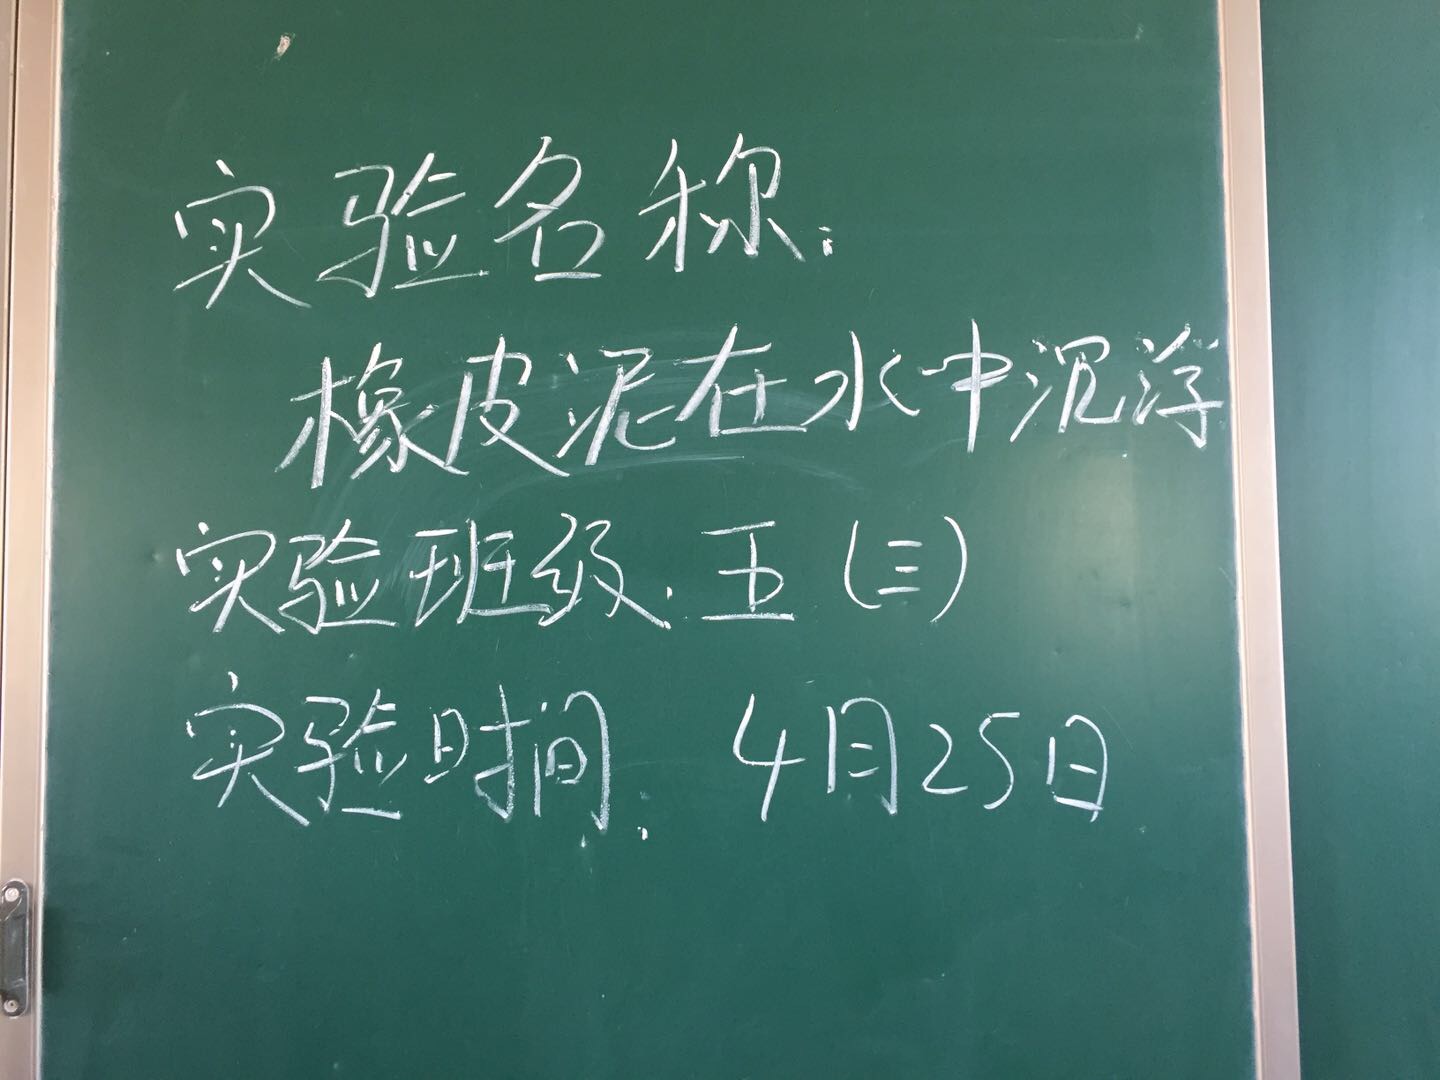 实验名称：
橡皮泥在水中沉浮
实验班级：五（三）
实验时间：4月25日